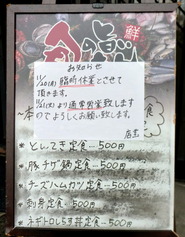 旬の旨い
鮮
お知らせ
11/20(月) 臨時休業とさせて
頂きます。
11/21(火)より通常営業致します
のでよろしくお願い致します。
店主
本
定食
とんてき定食―500円
豚チゲ鍋定食―500円
チーズハムカツ定食―500円
刺身定食―500円
ネギトロしらす丼定食―500円